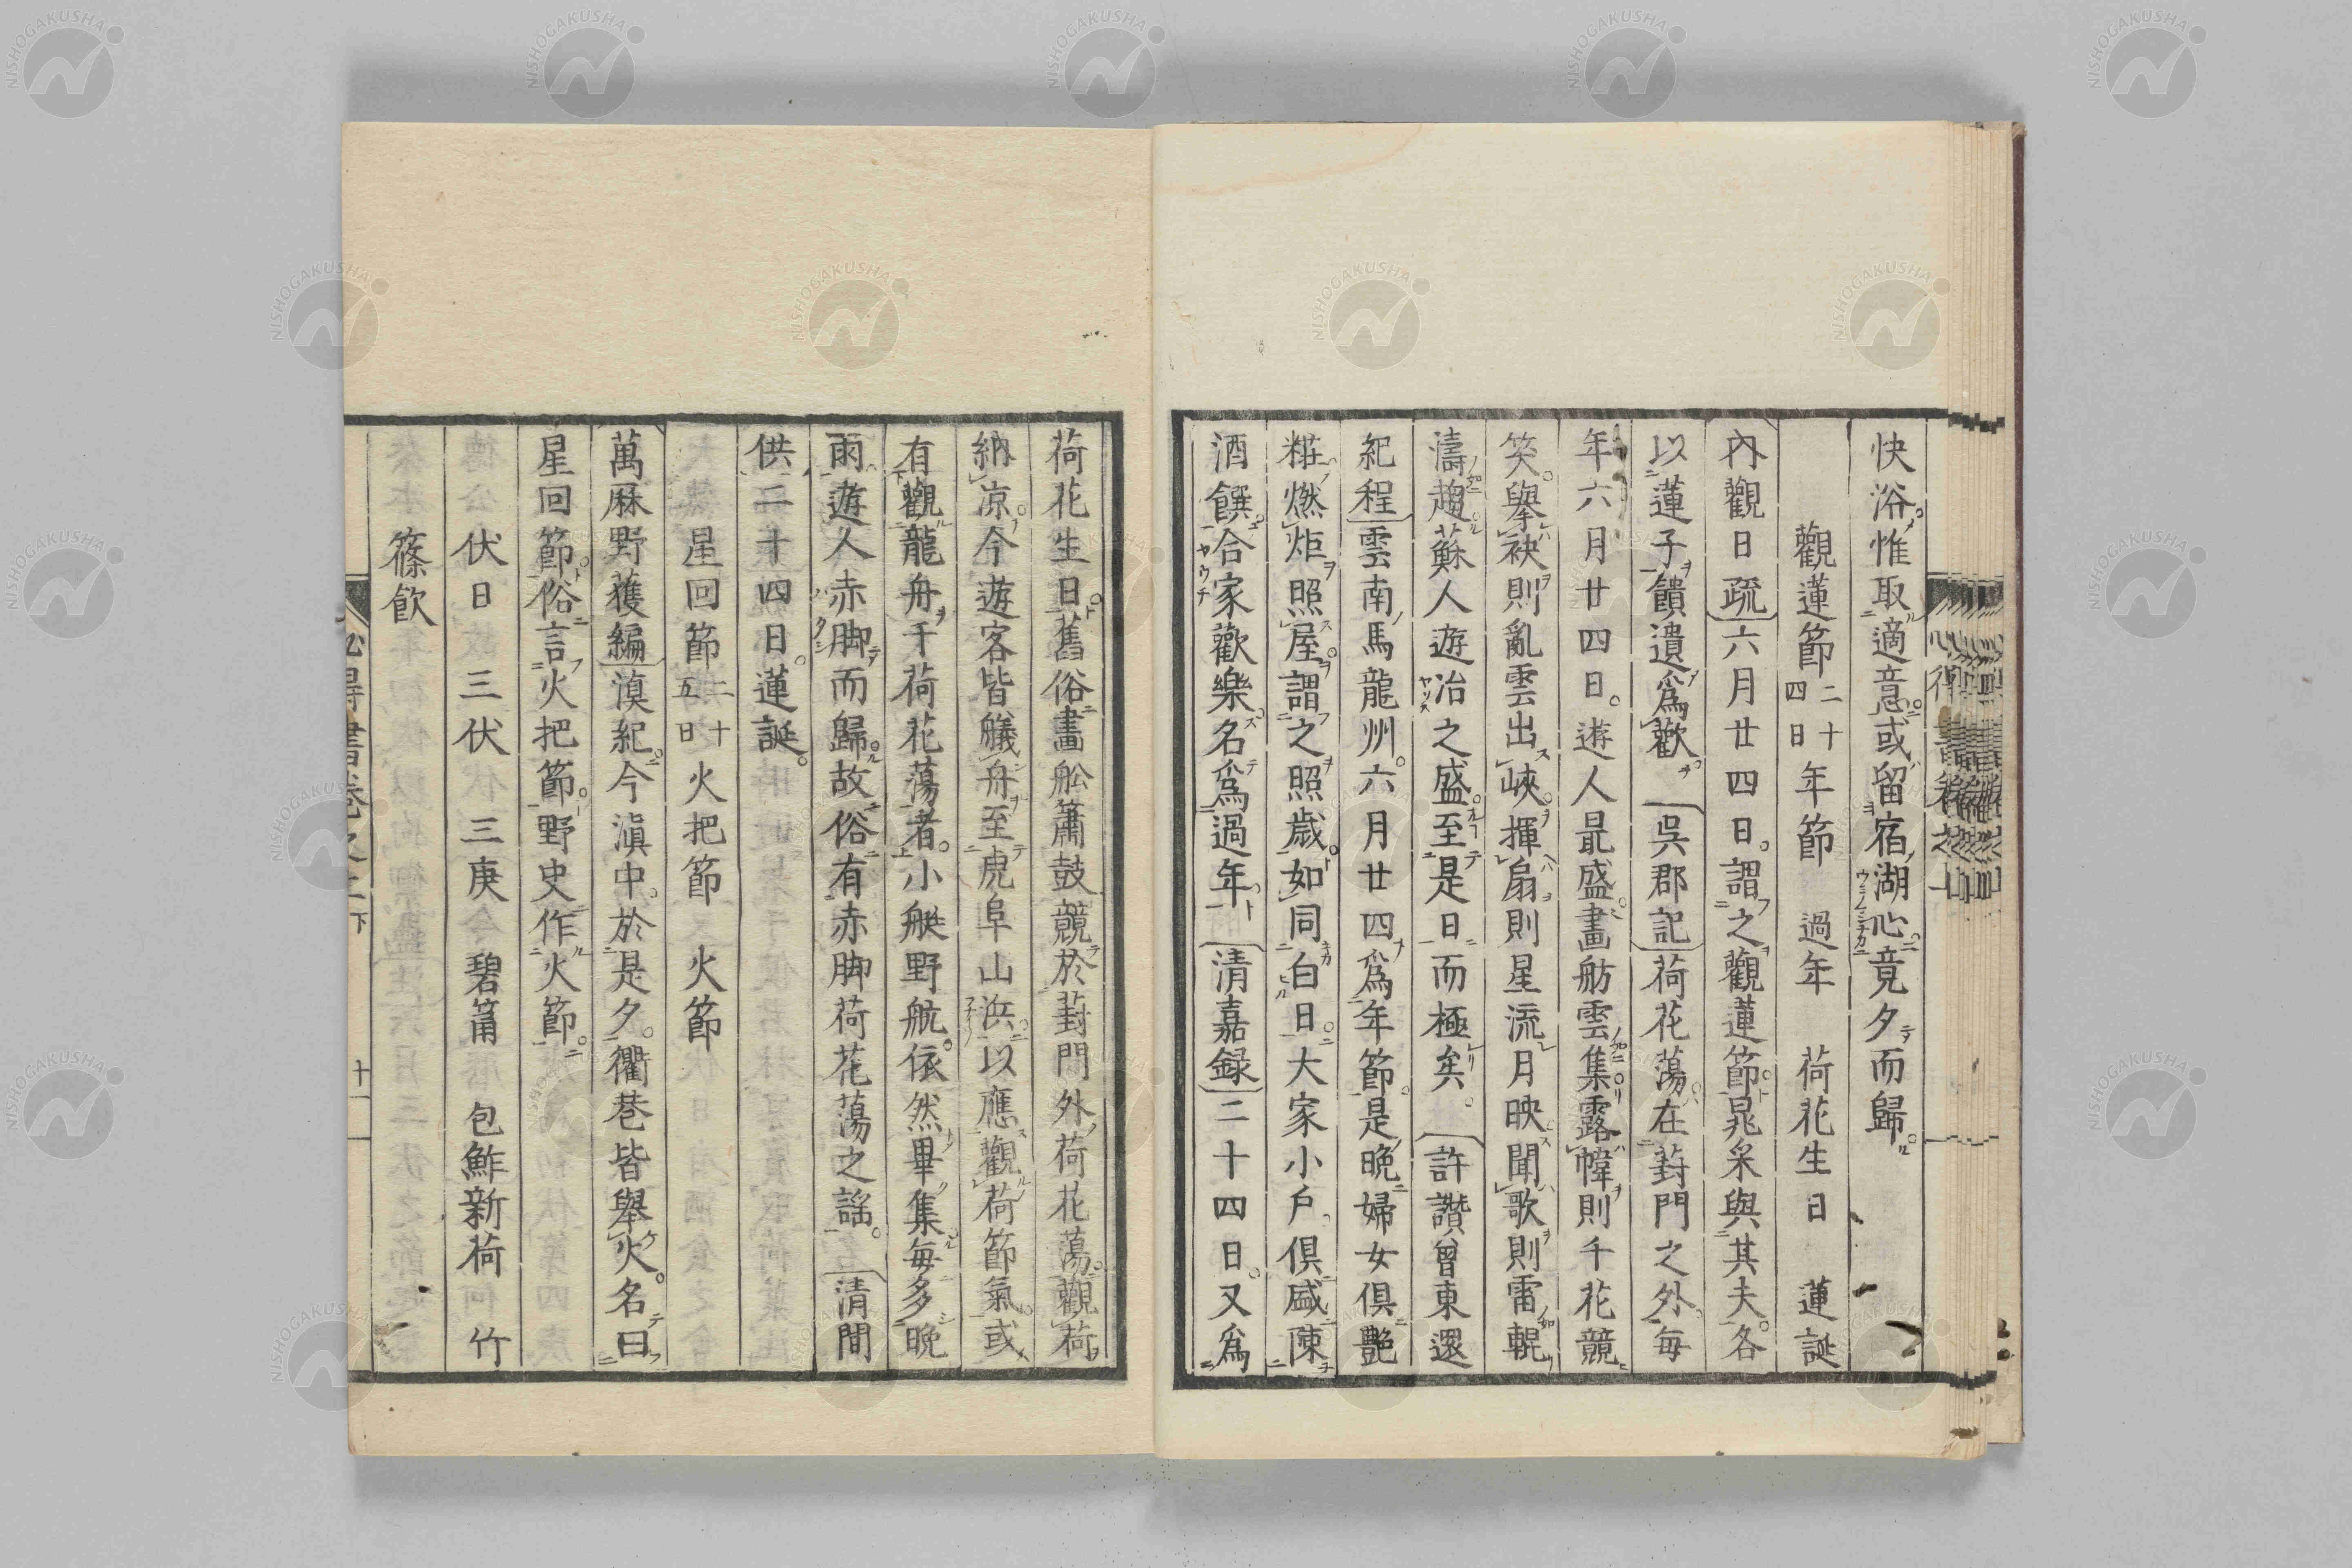 快浴惟取適意或留宿湖心竟夕而歸
觀蓮節二十四日年節 過年 荷花生日 蓮誕
內觀日疏六月廿四日謂之觀蓮節晁采與其夫各
以蓮子饋遺爲歡 吳郡記荷花蕩在葑門之外每
年六月廿四日遊人最盛畫舫雲集露幃則千花競
笑擧袂則亂雲出峽揮扇則星流月映聞歌則雷輥
濤趨蘇人遊冶之盛至是日而極矣 許讚曾東還
紀程雲南馬龍州六月廿四爲年節是晚婦女俱艶
粧燃炬照屋謂之照歲如同白日大家小戶俱盛陳
酒饌合家歡樂名爲過年 清嘉録二十四日又爲
荷花生日舊俗畫舩簫鼓競於葑門外荷花蕩觀荷
納凉今遊客皆艤舟至虎阜山浜以應觀荷節氣或
有觀龍舟于荷花蕩者小艇野航依然畢集每多晚
雨遊人赤脚而歸故俗有赤脚荷花蕩之謠 清間
供二十四日蓮誕
星回節二十五日火把節 火節
萬厤野獲編滇紀今滇中於是夕衢巷皆舉火名曰
星回節俗言火把節野史作火節
伏日 三伏 三庚 碧筩 包鮓新荷 竹
篠飲
必得書卷之上下 十一